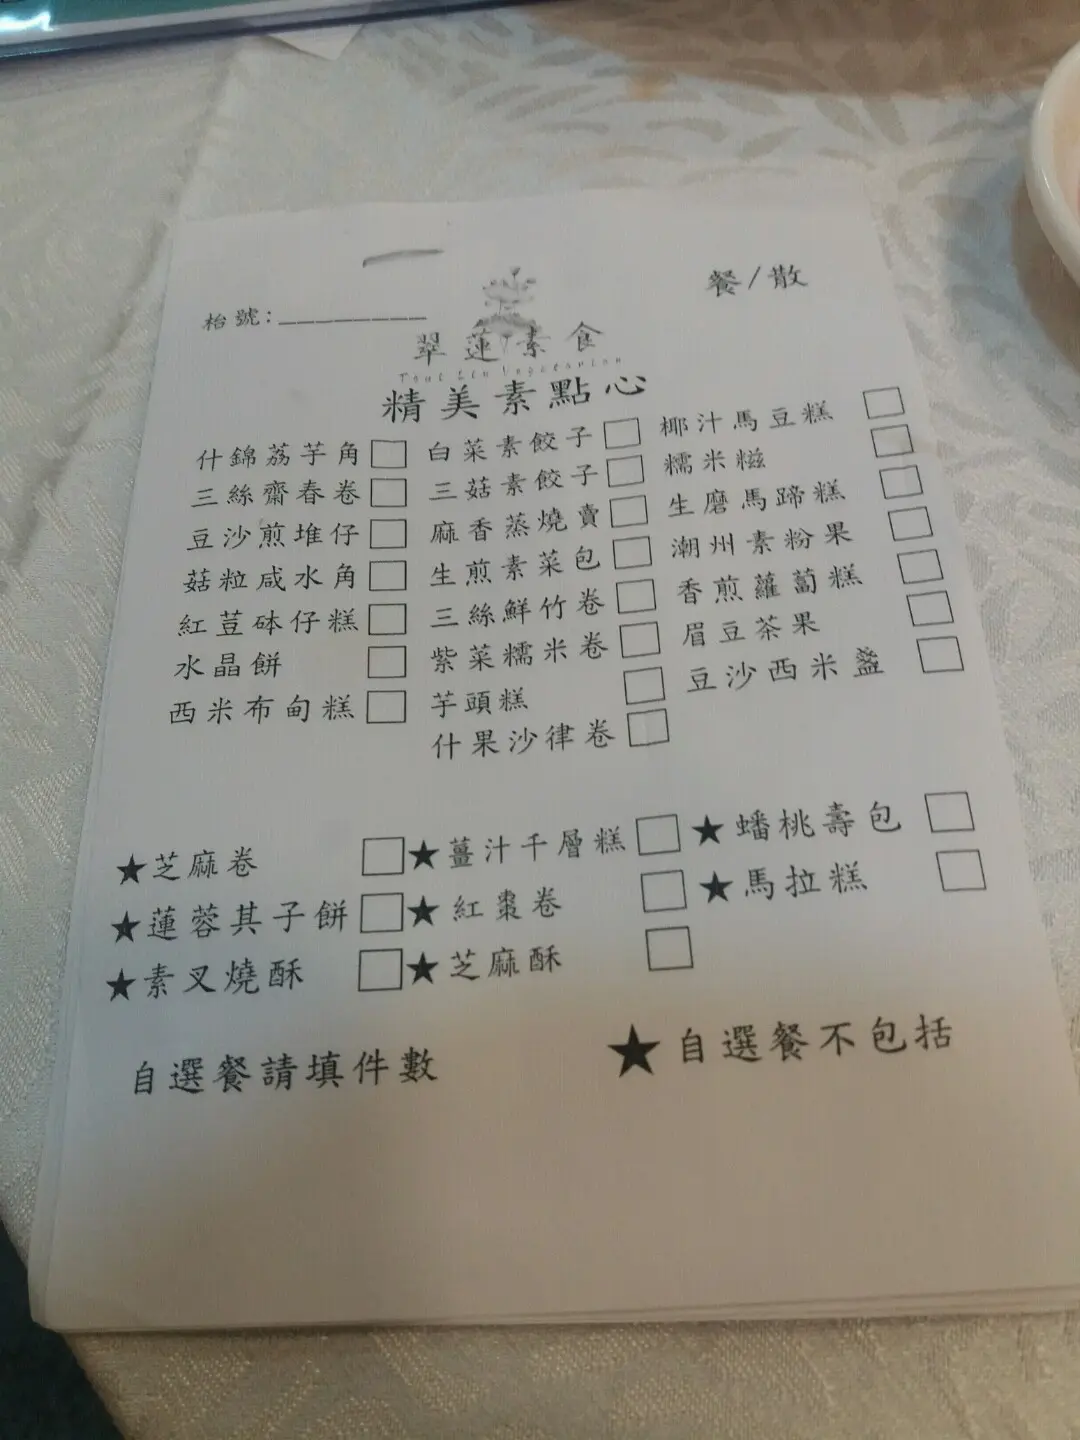 餐/散
枱號:_________
翠蓮素食
精美素點心
什錦荔芋角 □ 白菜素餃子 □ 椰汁馬豆糕 □
三絲齋春卷 □ 三菇素餃子 □ 糯米糍 □
豆沙煎堆仔 □ 麻香蒸燒賣 □ 生磨馬蹄糕 □
菇粒咸水角 □ 生煎素菜包 □ 潮州素粉果 □
紅荳砵仔糕 □ 三絲鮮竹卷 □ 香煎蘿蔔糕 □
水晶餅 □ 紫菜糯米卷 □ 眉豆茶果 □
西米布甸糕 □ 芋頭糕 □ 豆沙西米盞 □
什果沙律卷 □
★芝麻卷 □ ★薑汁千層糕 □ ★蟠桃壽包 □
★蓮蓉其子餅 □ ★紅棗卷 □ ★馬拉糕 □
★素叉燒酥 □ ★芝麻酥 □
自選餐請填件數 ★自選餐不包括